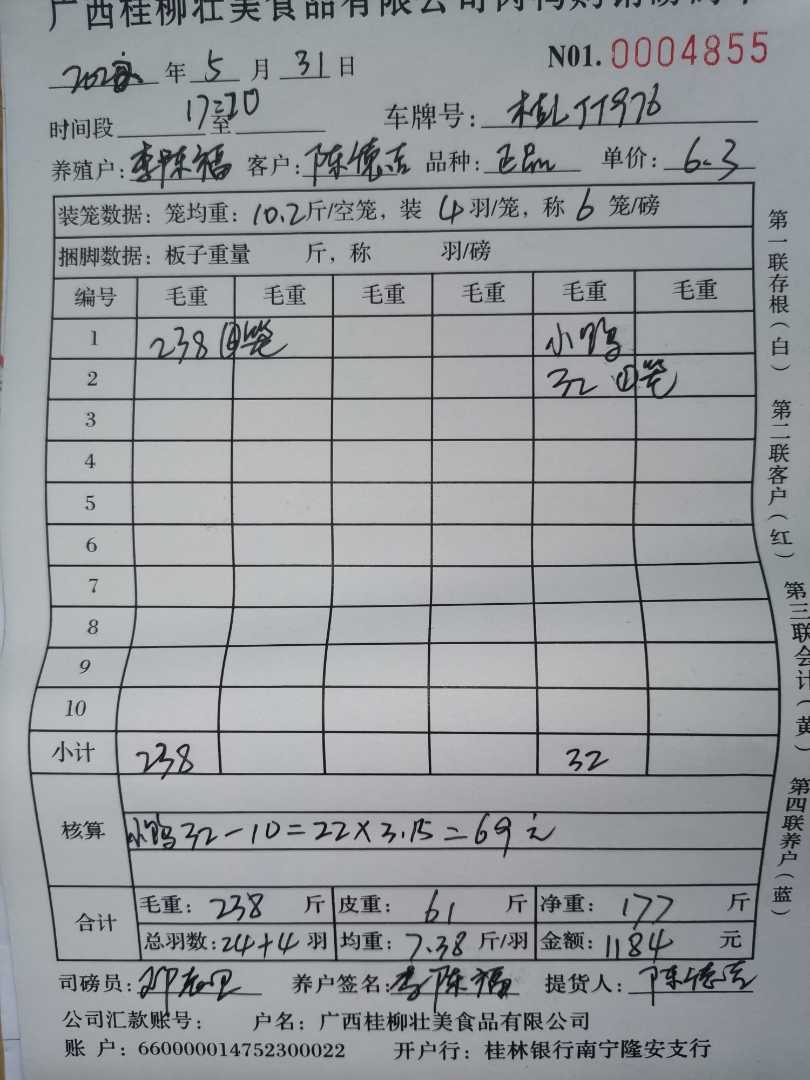 广西桂柳壮美食品有限公司肉鸭购销
年 5 月 31 日 N01. 0004855
时间段 17:20 至 车牌号:
养殖户: 李陈福 客户: 陈德吉 品种: 正品 单价: 6.3
装笼数据: 笼均重: 10.2 斤/空笼, 装 4 羽/笼, 称 6 笼/磅
捆脚数据: 板子重量 斤, 称 羽/磅
编号 毛重 毛重 毛重 毛重 毛重 毛重
1 238 笼 小鸭
2 32 ①笼
3
4
5
6
7
8
9
10
小计 238 32
核算 小鸭 32-10=22×3.15=69元
合计 毛重: 238 斤 皮重: 61 斤 净重: 177 斤
总羽数: 24+4 羽 均重: 7.38 斤/羽 金额: 1184 元
司磅员: 养户签名: 李陈福 提货人: 陈德吉
公司汇款账号: 户名: 广西桂柳壮美食品有限公司
账 户: 660000014752300022 开户行: 桂林银行南宁隆安支行
第一联存根(白)
第二联客户(红)
第三联会计(黄)
第四联养户(蓝)